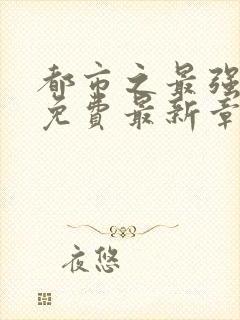 都市之最强
免费最新章
夜悠